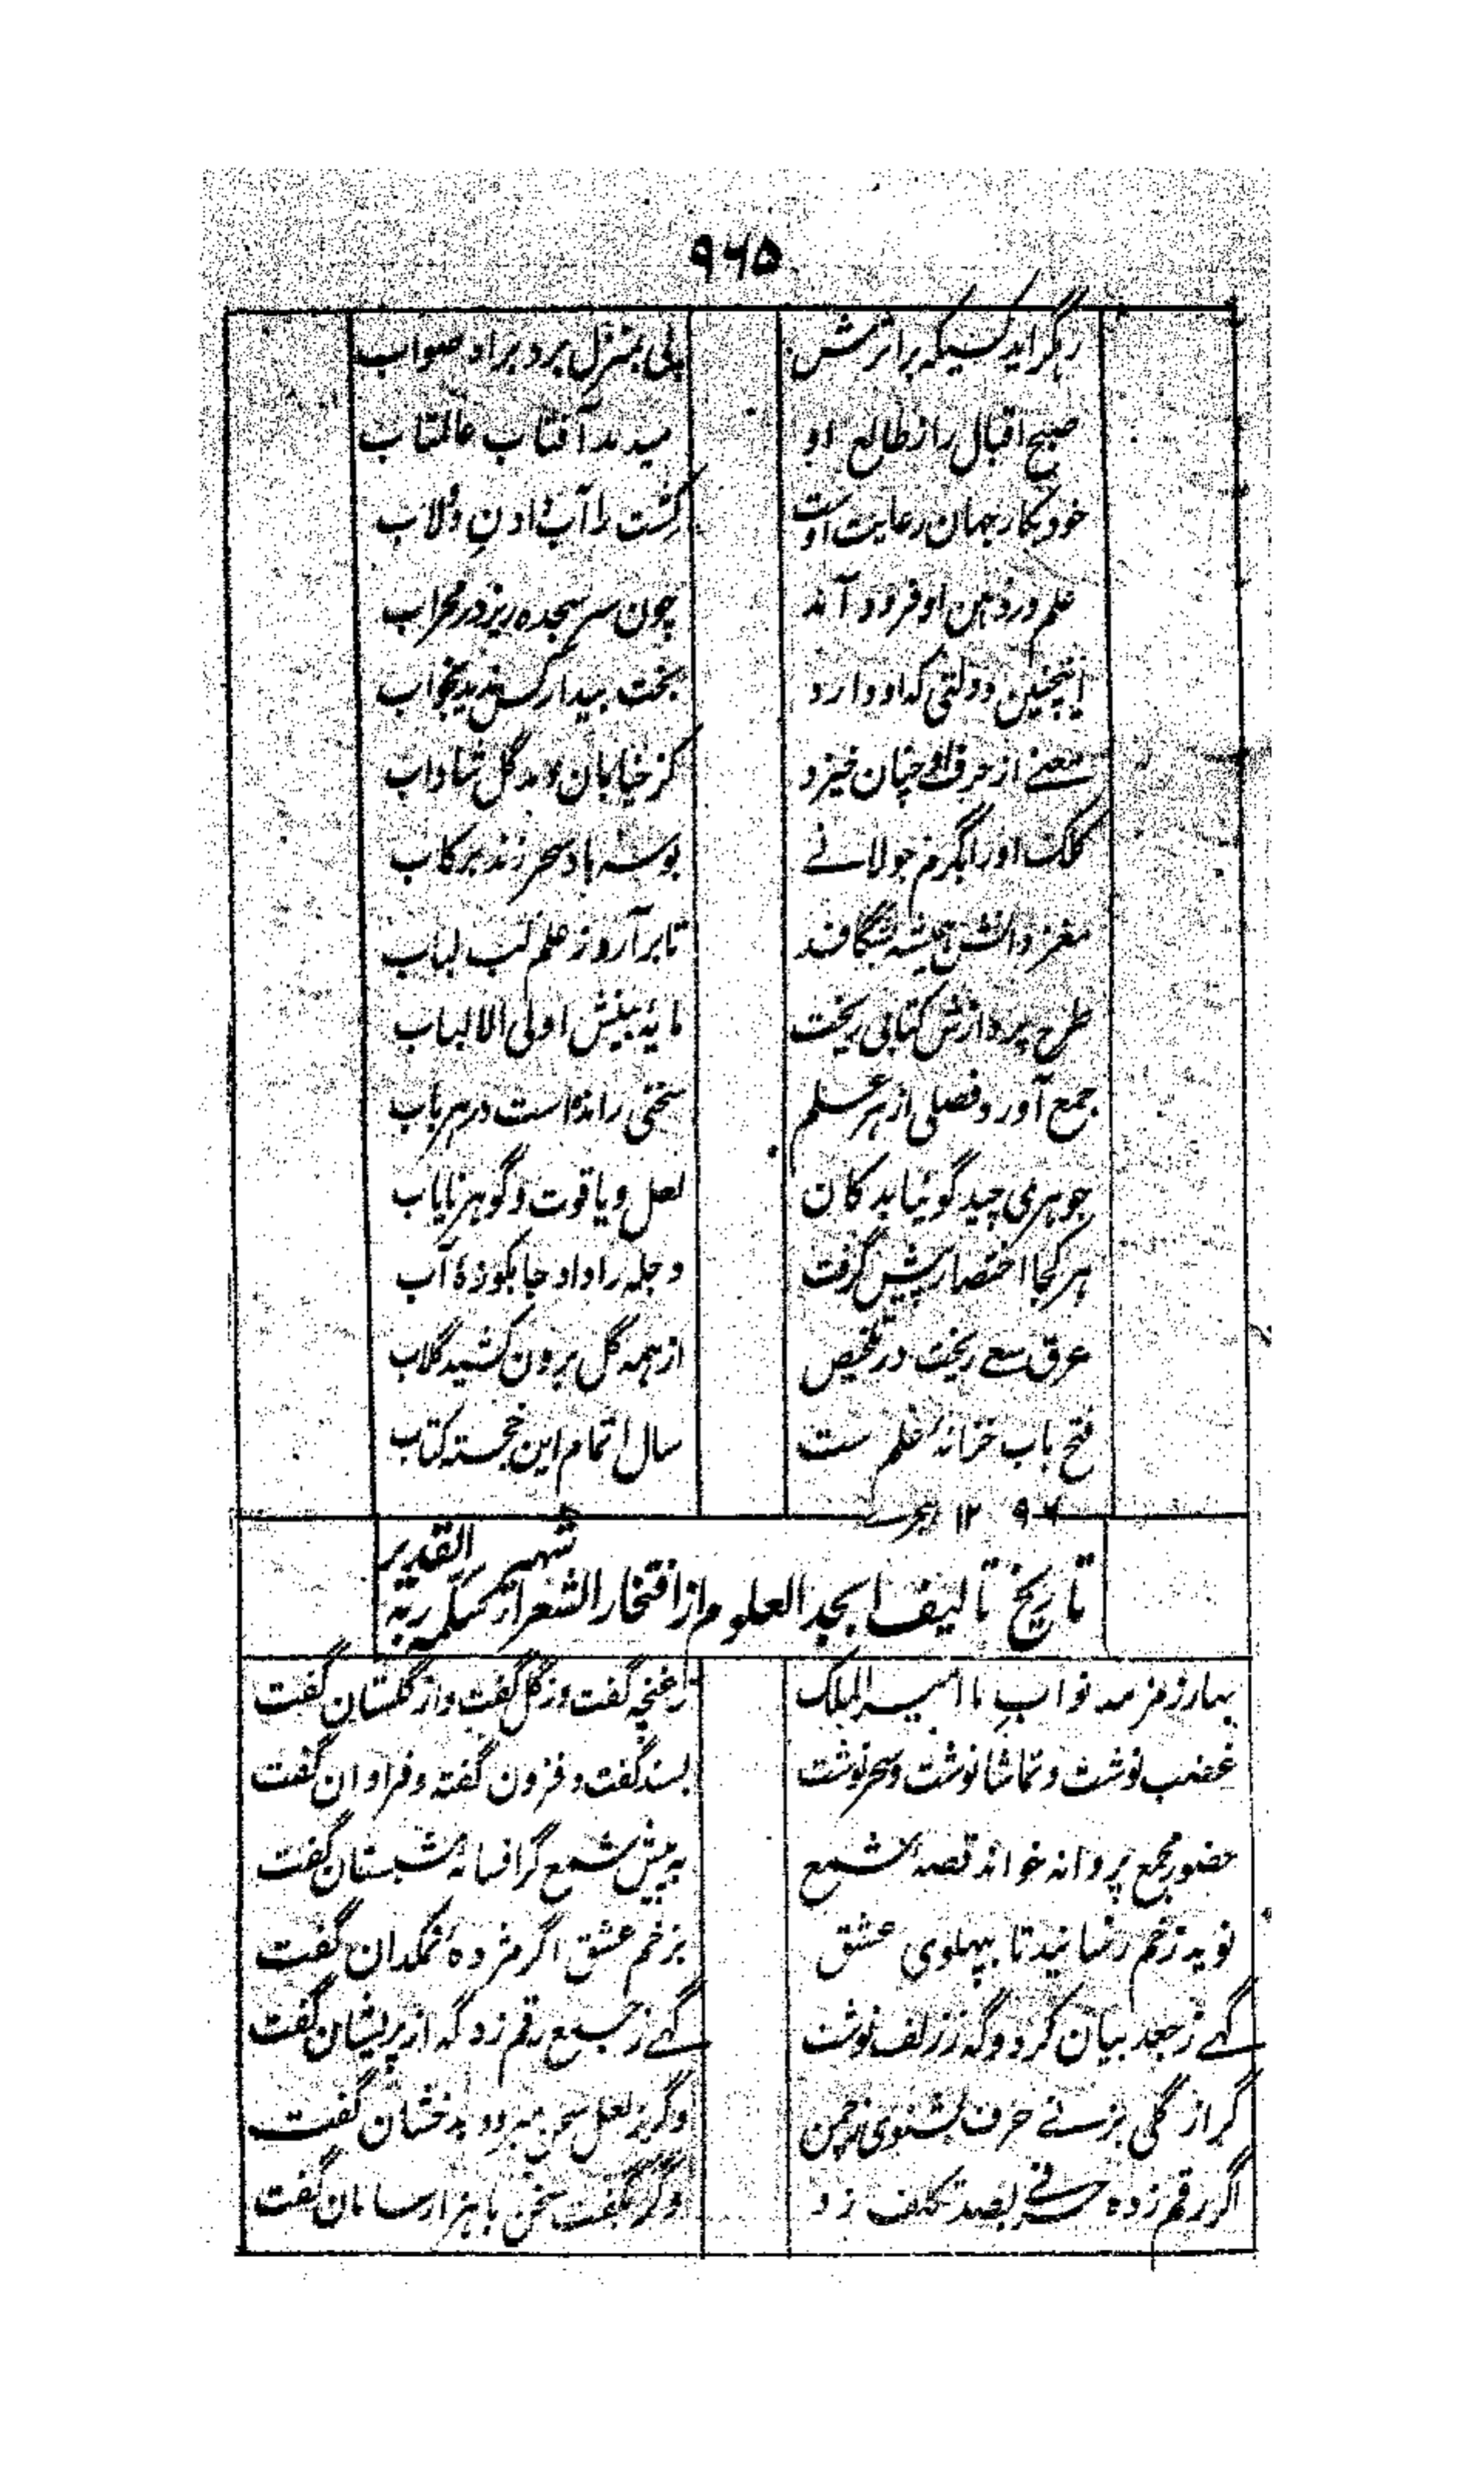 ۹۶۵
رهگراید کسیکه بر اثرش پی بمنزل برد براه صواب
صبح اقبال را ز طالع او میدمد آفتاب عالمتاب
خود بکار جهان رعایت اوست کشت را آب دادن دولاب
علم در ذهن او فرود آمد چون سر سجده ریز در محراب
اینچنین دولتی که او دارد بخت بیدار کس ندید بخواب
معنے از حرف او چنان خیزد کز خیابان دمد گل شاداب
کلک او را بگرم جولانے بوسه باد سحر زند برکاب
مغز دانش تیشه بشگافد تا برآرد ز علم لب لباب
طرح پردازش کتابی ریخت مایهٔ بینش اولی الالباب
جمع آورد فصلی از هر علم سخنی رانده است در هر باب
جوهری چید گوئیا بدکان لعل و یاقوت و گوهر نایاب
هر کجا اختصار پیش گرفت دجله را داد جا بکوزهٔ آب
عرق سعے ریخت در تلخیص از همه گل برون کشید گلاب
فتح باب خزانهٔ علم ست سال اتمام این خجسته کتاب
۱۲۹۶ هجرے
تاریخ تالیف ابجد العلوم از افتخار الشعرا شهیر سلمه ربه القدیر
بهار زمزمه نواب ما امیر الملک ز غنچه گفت و ز گل گفت و از گلستان گفت
غضب نوشت و تماشا نوشت و سحر نوشت بسند گفت و فزون گفته و فراوان گفت
حضور مجمع پروانه خواند قصهٔ شمع به پیش شمع گر افسانهٔ شبستان گفت
نوید زخم رسانید تا بپهلوی عشق بزخم عشق اگر مژدهٔ نمکدان گفت
گہے ز جعد بیان کرد و گه ز زلف نوشت گہے ز جمع رقم زد گه از پریشان گفت
گر از گلی بزنے حرف بشنوی ز چمن وگر ز لعل سخن میرود بدخشان گفت
اگر رقم زده حرفے بصد تکلف زد وگر بگفت سخن با هزار سامان گفت